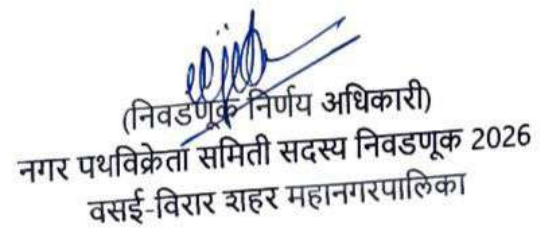 (निवडणूक निर्णय अधिकारी)
नगर पथविक्रेता समिती सदस्य निवडणूक 2026
वसई-विरार शहर महानगरपालिका